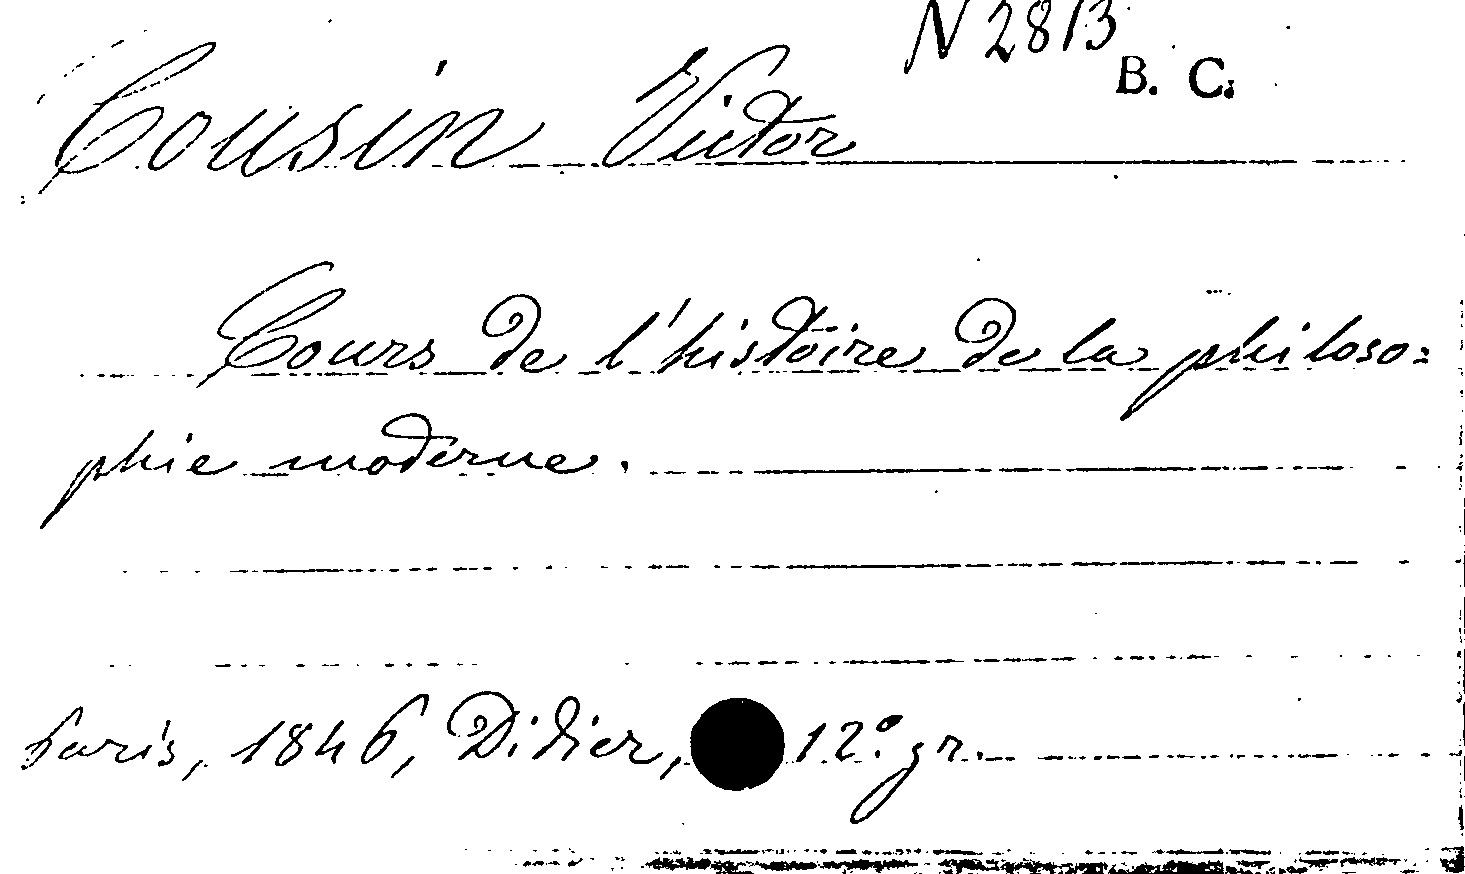 N 2813
B. C.
Cousin Victor
Cours de l'histoire de la philoso=
phie moderne.
Paris, 1846, Didier, 12° gr.